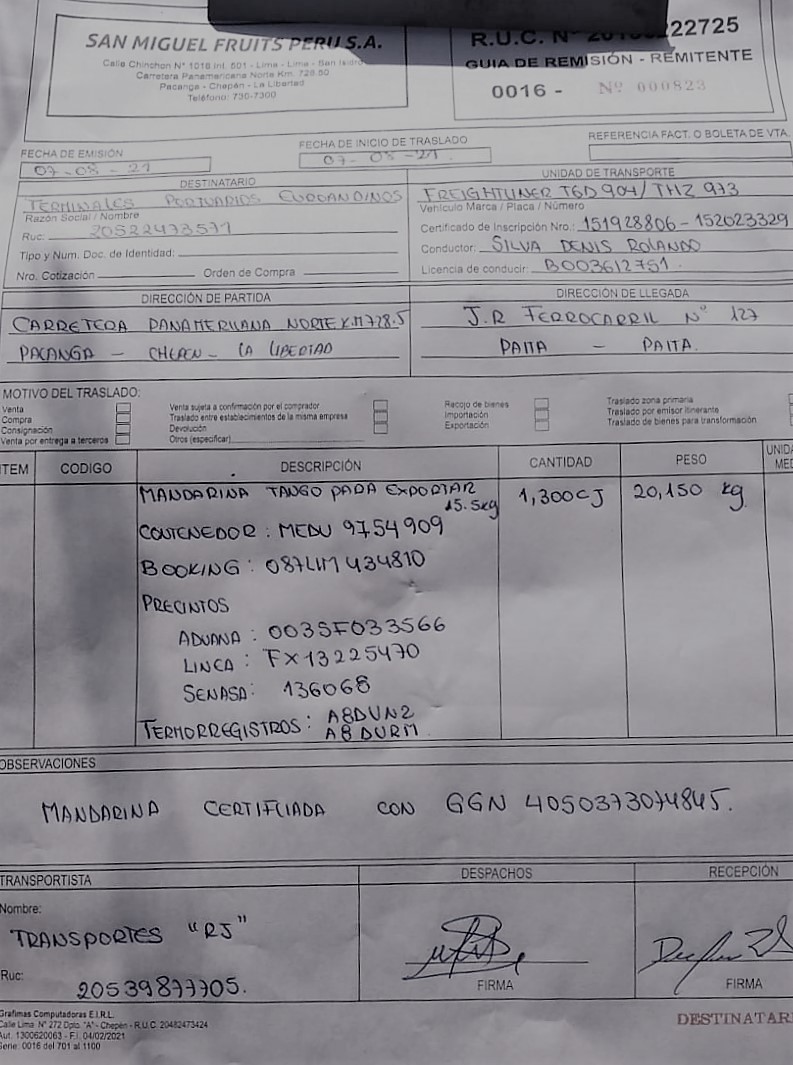 SAN MIGUEL FRUITS PERU S.A.
Calle Chinchon N° 1018 Int. 601 - Lima - Lima - San Isidro
Carretera Panamericana Norte Km. 728.50
Pacanga - Chepén - La Libertad
Teléfono: 730-7300
R.U.C. N° 222725
GUIA DE REMISIÓN - REMITENTE
0016 - Nº 000823
FECHA DE EMISIÓN
07-08-21
FECHA DE INICIO DE TRASLADO
07-08-21.
REFERENCIA FACT. O BOLETA DE VTA.
DESTINATARIO
TERMINALES PORTUARIOS EUROANDINOS
Razón Social / Nombre
Ruc: 20522473571
Tipo y Num. Doc. de Identidad:
Nro. Cotización Orden de Compra
UNIDAD DE TRANSPORTE
FREIGHTLINER T6D 904/ THZ 973
Vehículo Marca / Placa / Número
Certificado de Inscripción Nro.: 151928806 - 152023329
Conductor: SILVA DENIS ROLANDO
Licencia de conducir: B003612751.
DIRECCIÓN DE PARTIDA
CARRETERA PANAMERICANA NORTE K.M 728.5
PACANGA - CHEPEN - LA LIBERTAD
DIRECCIÓN DE LLEGADA
J.R FERROCARRIL N° 127
PAITA - PAITA.
MOTIVO DEL TRASLADO:
Venta
Compra
Consignación
Venta por entrega a terceros
Venta sujeta a confirmación por el comprador
Traslado entre establecimientos de la misma empresa
Devolución
Otros (especificar)
Recojo de bienes
Importación
Exportación
Traslado zona primaria
Traslado por emisor itinerante
Traslado de bienes para transformación
ITEM CODIGO DESCRIPCIÓN CANTIDAD PESO
MANDARINA TANGO PARA EXPORTAR 1,300CJ 20,150 kg
15.5kg
CONTENEDOR : MEDU 9754909
BOOKING : 087LIM434810
PRECINTOS
ADUANA : 003SF033566
LINEA : FX13225470
SENASA: 136068
TERMORREGISTROS : A8DUN2
A8DURM
OBSERVACIONES
MANDARINA CERTIFICADA CON GGN 4050373074845.
TRANSPORTISTA
Nombre:
TRANSPORTES "RJ"
Ruc: 20539877705.
DESPACHOS
FIRMA
RECEPCIÓN
FIRMA
Grafimas Computadoras E.I.R.L.
Calle Lima N° 272 Dpto. "A" - Chepén - R.U.C. 20482473424
Aut. 1300620063 - F.I. 04/02/2021
Serie: 0016 del 701 al 1100